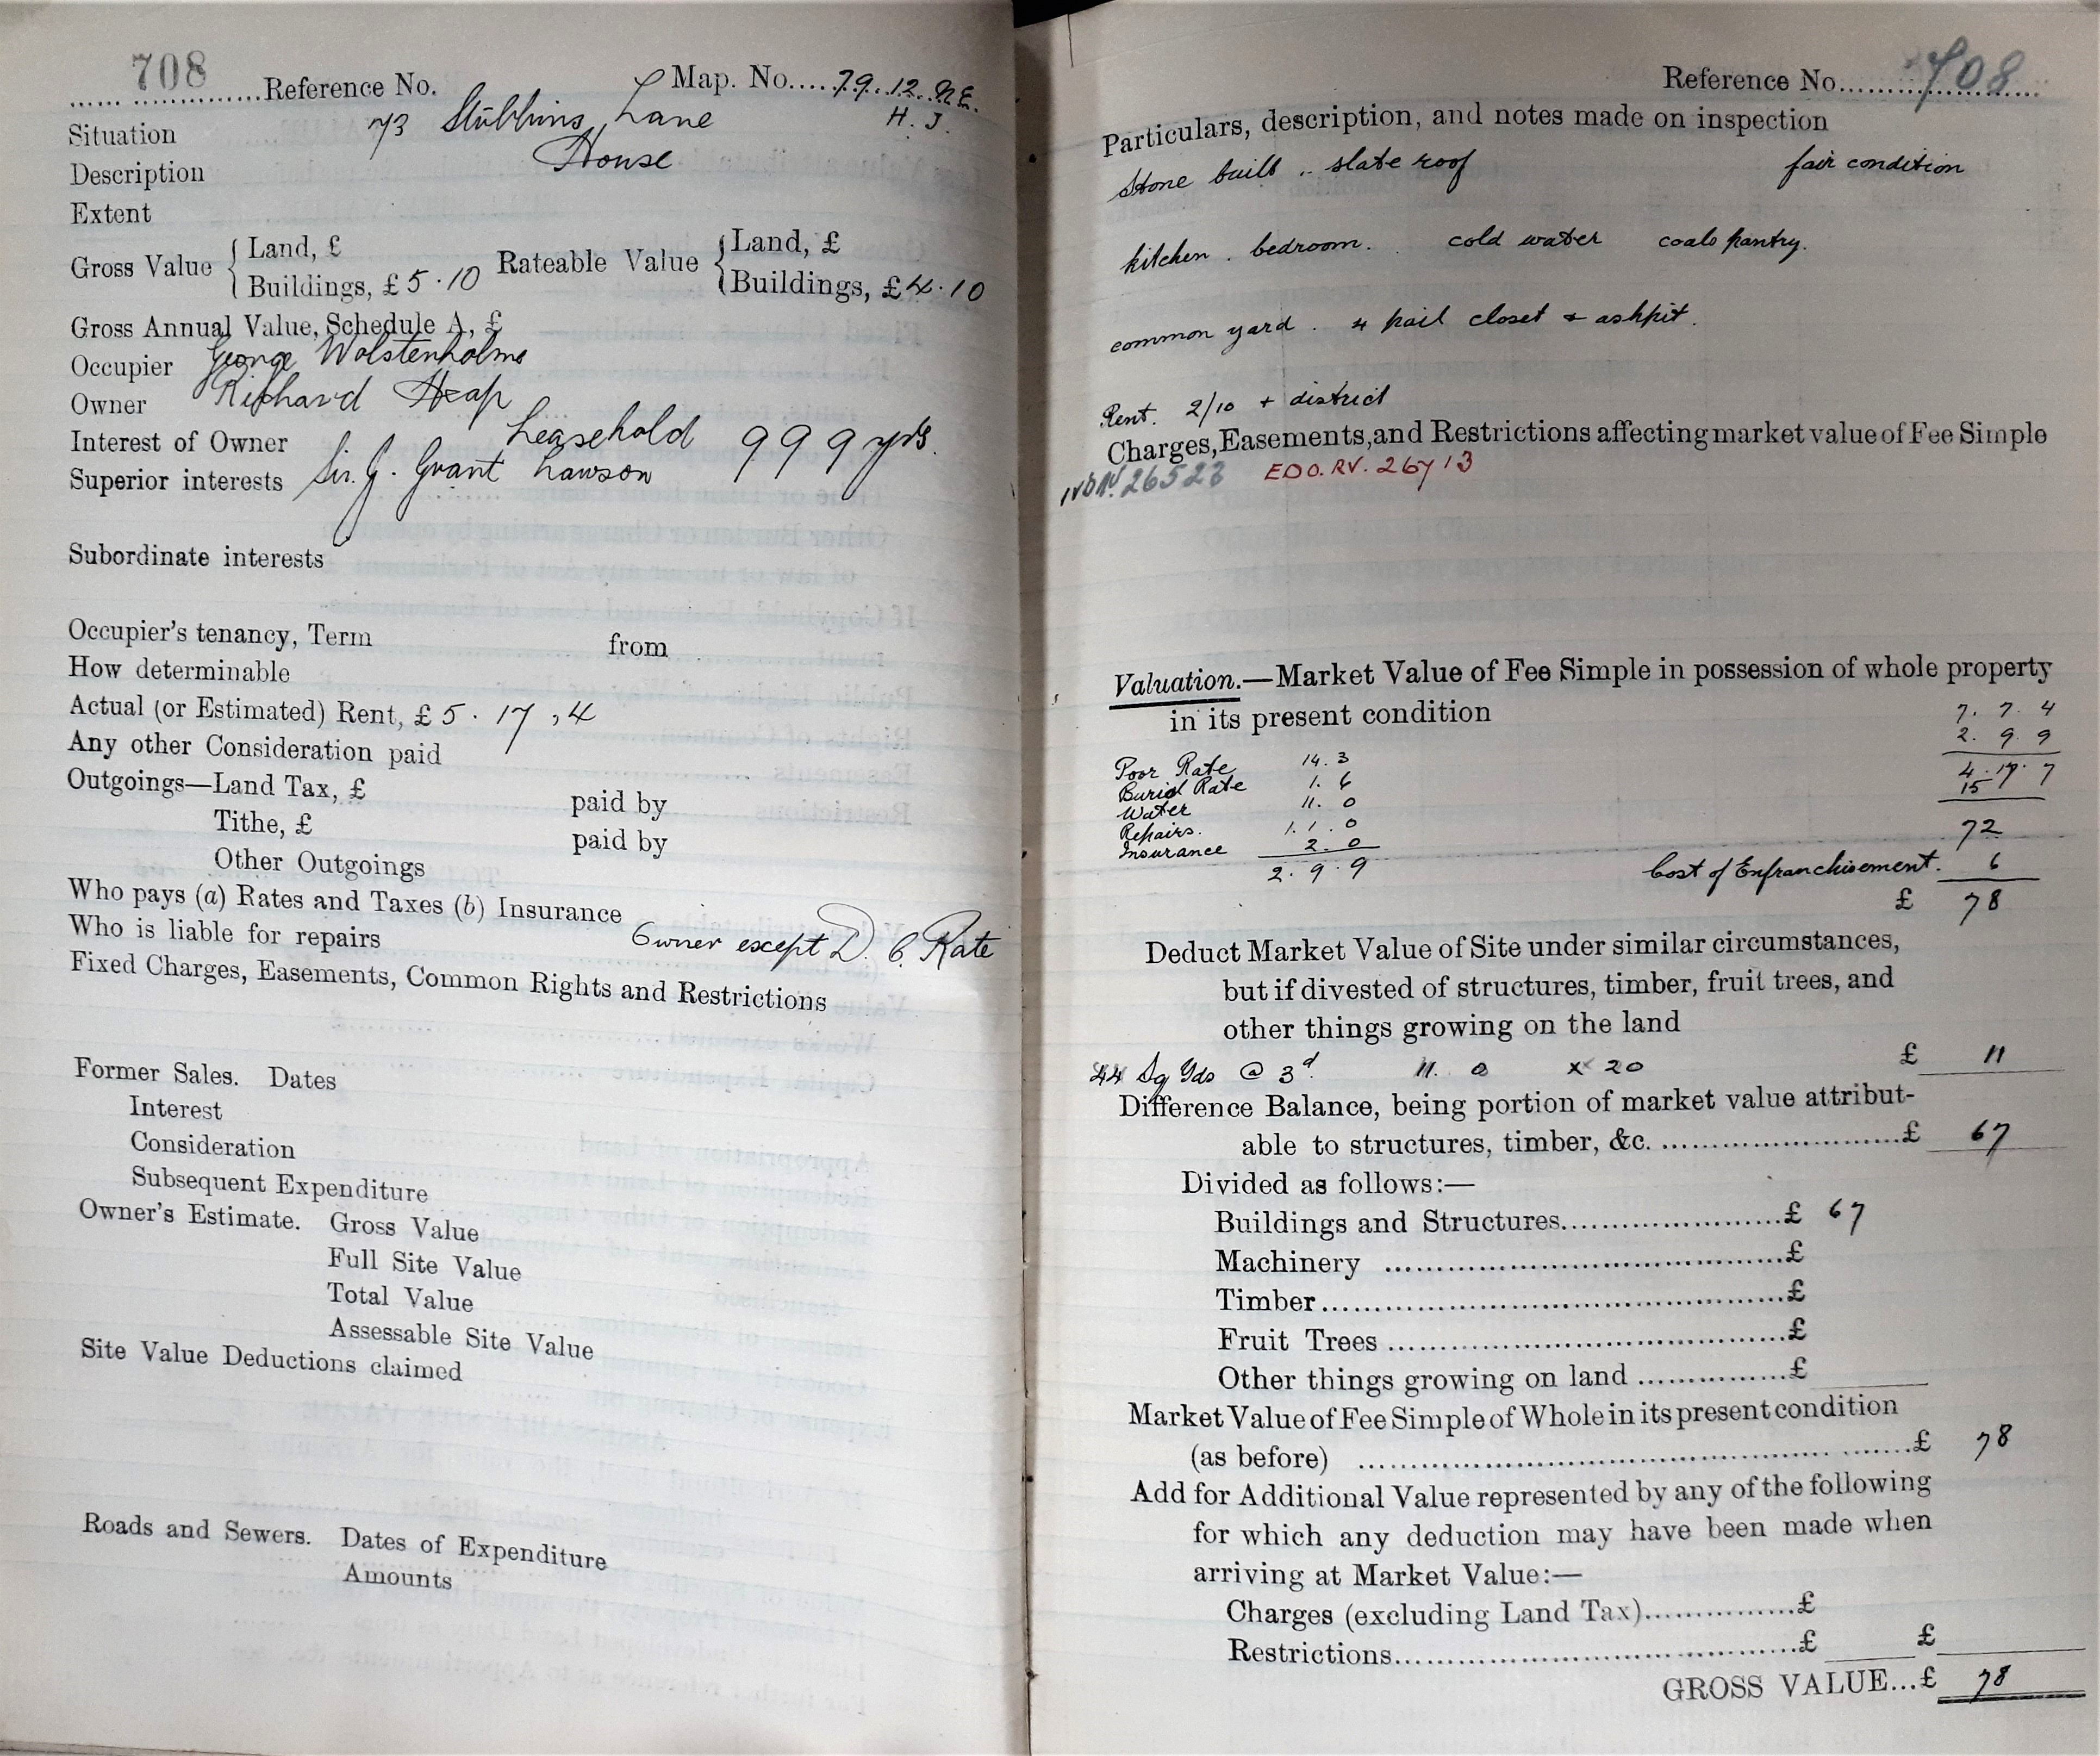 708
Reference No. Map. No. 79.12.N.E.
H. J.
Situation 73 Stubbins Lane
Description House
Extent
Gross Value { Land, £
Buildings, £ 5.10
Rateable Value { Land, £
Buildings, £ 4.10
Gross Annual Value, Schedule A, £
Occupier George Wolstenholme
Owner Richard Heap
Interest of Owner Leasehold 999 yrs.
Superior interests Sir. J. Grant Lawson
Subordinate interests
Occupier's tenancy, Term from
How determinable
Actual (or Estimated) Rent, £ 5. 17. 4
Any other Consideration paid
Outgoings—Land Tax, £ paid by
Tithe, £ paid by
Other Outgoings
Who pays (a) Rates and Taxes (b) Insurance
Who is liable for repairs Owner except D. C. Rate
Fixed Charges, Easements, Common Rights and Restrictions
Former Sales. Dates
Interest
Consideration
Subsequent Expenditure
Owner's Estimate. Gross Value
Full Site Value
Total Value
Assessable Site Value
Site Value Deductions claimed
Roads and Sewers. Dates of Expenditure
Amounts
Reference No. 708
Particulars, description, and notes made on inspection
Stone built .. slate roof fair condition
kitchen . bedroom. cold water coals pantry.
common yard . 4 pail closet & ashpit.
Rent. 2/10 + district
Charges, Easements, and Restrictions affecting market value of Fee Simple
26523 EDO. RV. 26713
Valuation.—Market Value of Fee Simple in possession of whole property
in its present condition
7. 7. 4
2. 9. 9
4. 17. 7
15
Poor Rate 14. 3
Burial Rate 1. 6
Water 11. 0
Repairs. 1. 1. 0
Insurance 2. 0
2. 9. 9
72
Cost of Enfranchisement. 6
£ 78
Deduct Market Value of Site under similar circumstances,
but if divested of structures, timber, fruit trees, and
other things growing on the land
44 Sq Yds @ 3d. 11. 0 x 20 £ 11
Difference Balance, being portion of market value attribut-
able to structures, timber, &c. £ 67
Divided as follows:—
Buildings and Structures £ 67
Machinery £
Timber £
Fruit Trees £
Other things growing on land £
Market Value of Fee Simple of Whole in its present condition
(as before) £ 78
Add for Additional Value represented by any of the following
for which any deduction may have been made when
arriving at Market Value:—
Charges (excluding Land Tax) £
Restrictions £ £
GROSS VALUE...£ 78